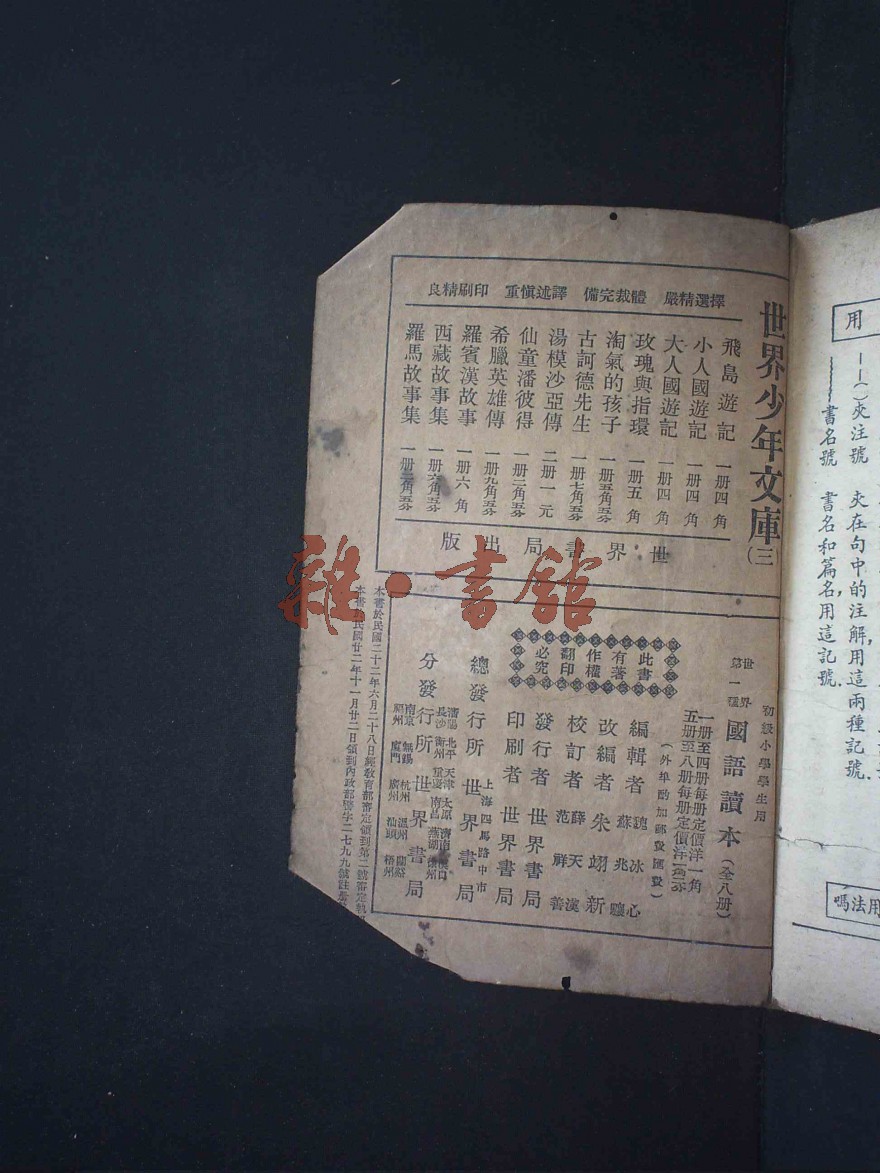 世界少年文庫(三)
擇選精嚴　體裁完備　譯述愼重　印刷精良
飛島遊記　一册四角
小人國遊記　一册四角
大人國遊記　一册四角
玫瑰與指環　一册五角
淘氣的孩子　一册五角五分
古訶德先生　一册七角五分
湯模沙亞傳　二册一元
仙童潘彼得　一册二角五分
希臘英雄傳　一册九角五分
羅賓漢故事　一册六角
西藏故事集　一册六角五分
羅馬故事集
世界書局出版
初級小學學生用
世界第一種　國語讀本（全八册）
一册至四册每册定價洋一角
五册至八册每册定價洋一角二分
（外埠酌加郵費匯費）
編輯者　魏冰心　蘇兆驤
改編者　朱翊新
校訂者　薛天漢　范祥善
發行者　世界書局
印刷者　世界書局
此書有著作權翻印必究
總發行所　上海四馬路中市　世界書局
分發行所　世界書局
瀋陽　北平　天津　太原　濟南　漢口
長沙　衡州　重慶　南昌　蕪湖　徐州
南京　無錫　杭州　溫州　蘭谿
福州　廈門　廣州　汕頭　梧州
本書於民國二十二年六月二十八日經敎育部審定領到第二號審定執照
本書於民國廿二年十一月廿二日領到內政部警字二七九九號註册
用
——（）夾注號　夾在句中的注解，用這兩種記號．
書名號　書名和篇名，用這記號．
用法嗎
雜·書館